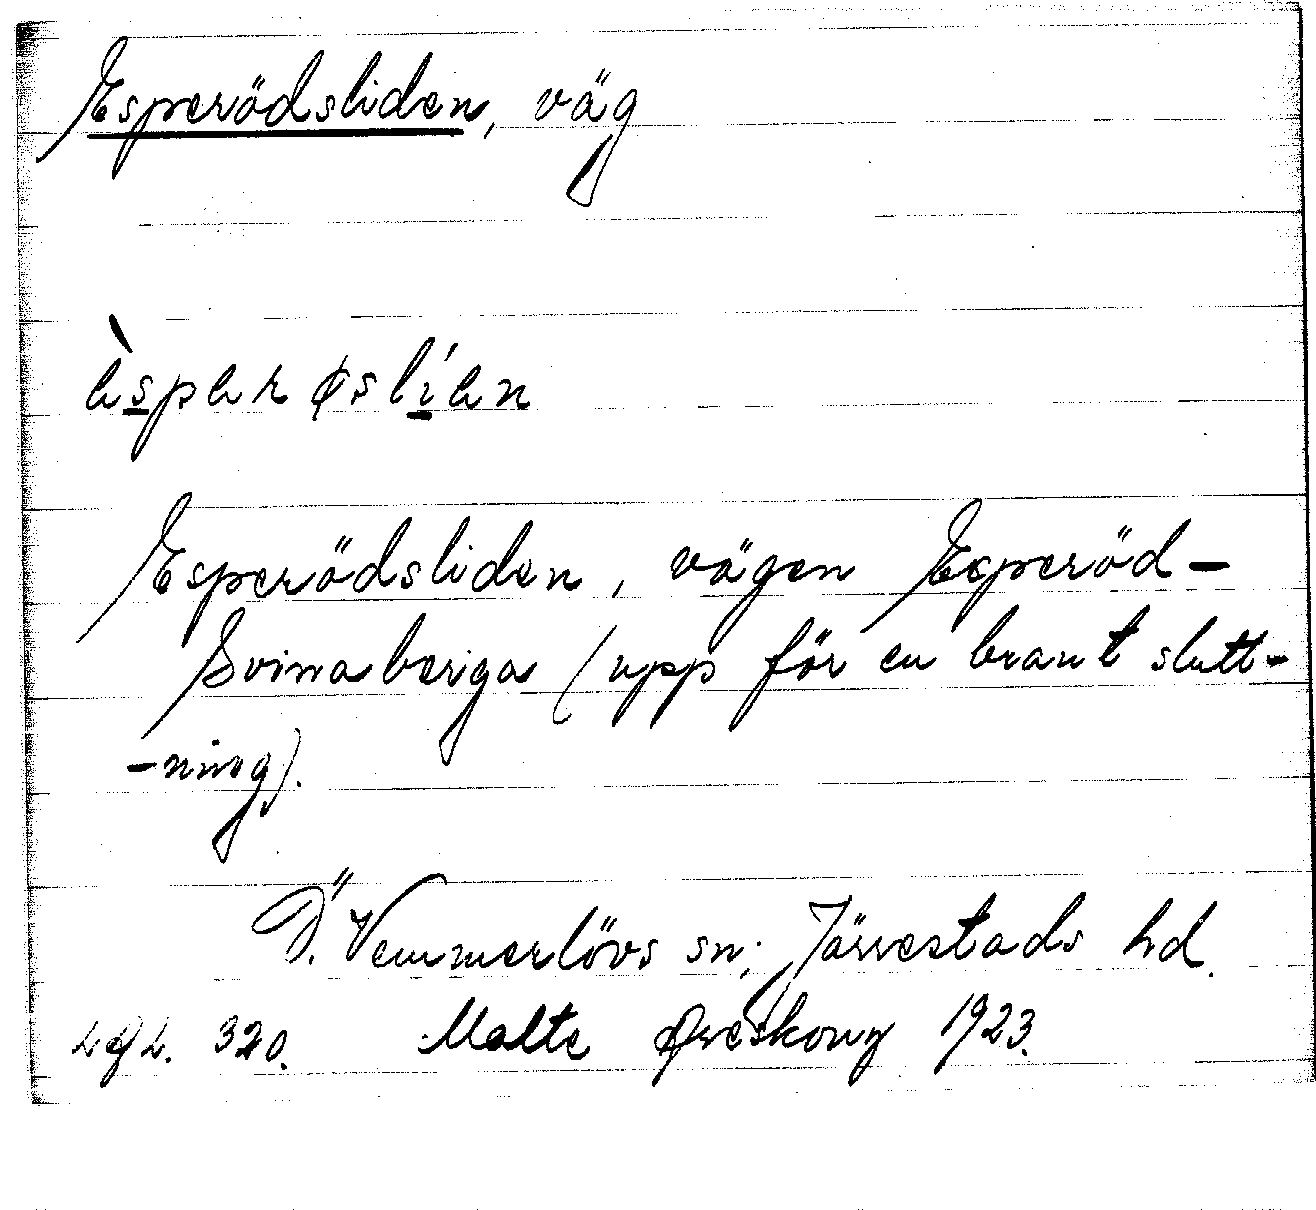 Esperödsliden, väg
èspeʀøslíen
Esperödsliden, vägen Esperöd-
Svinaberga (upp för en brant slutt-
-ning).
Ö. Vemmerlövs sn; Järrestads hd.
320. Malte 1923.